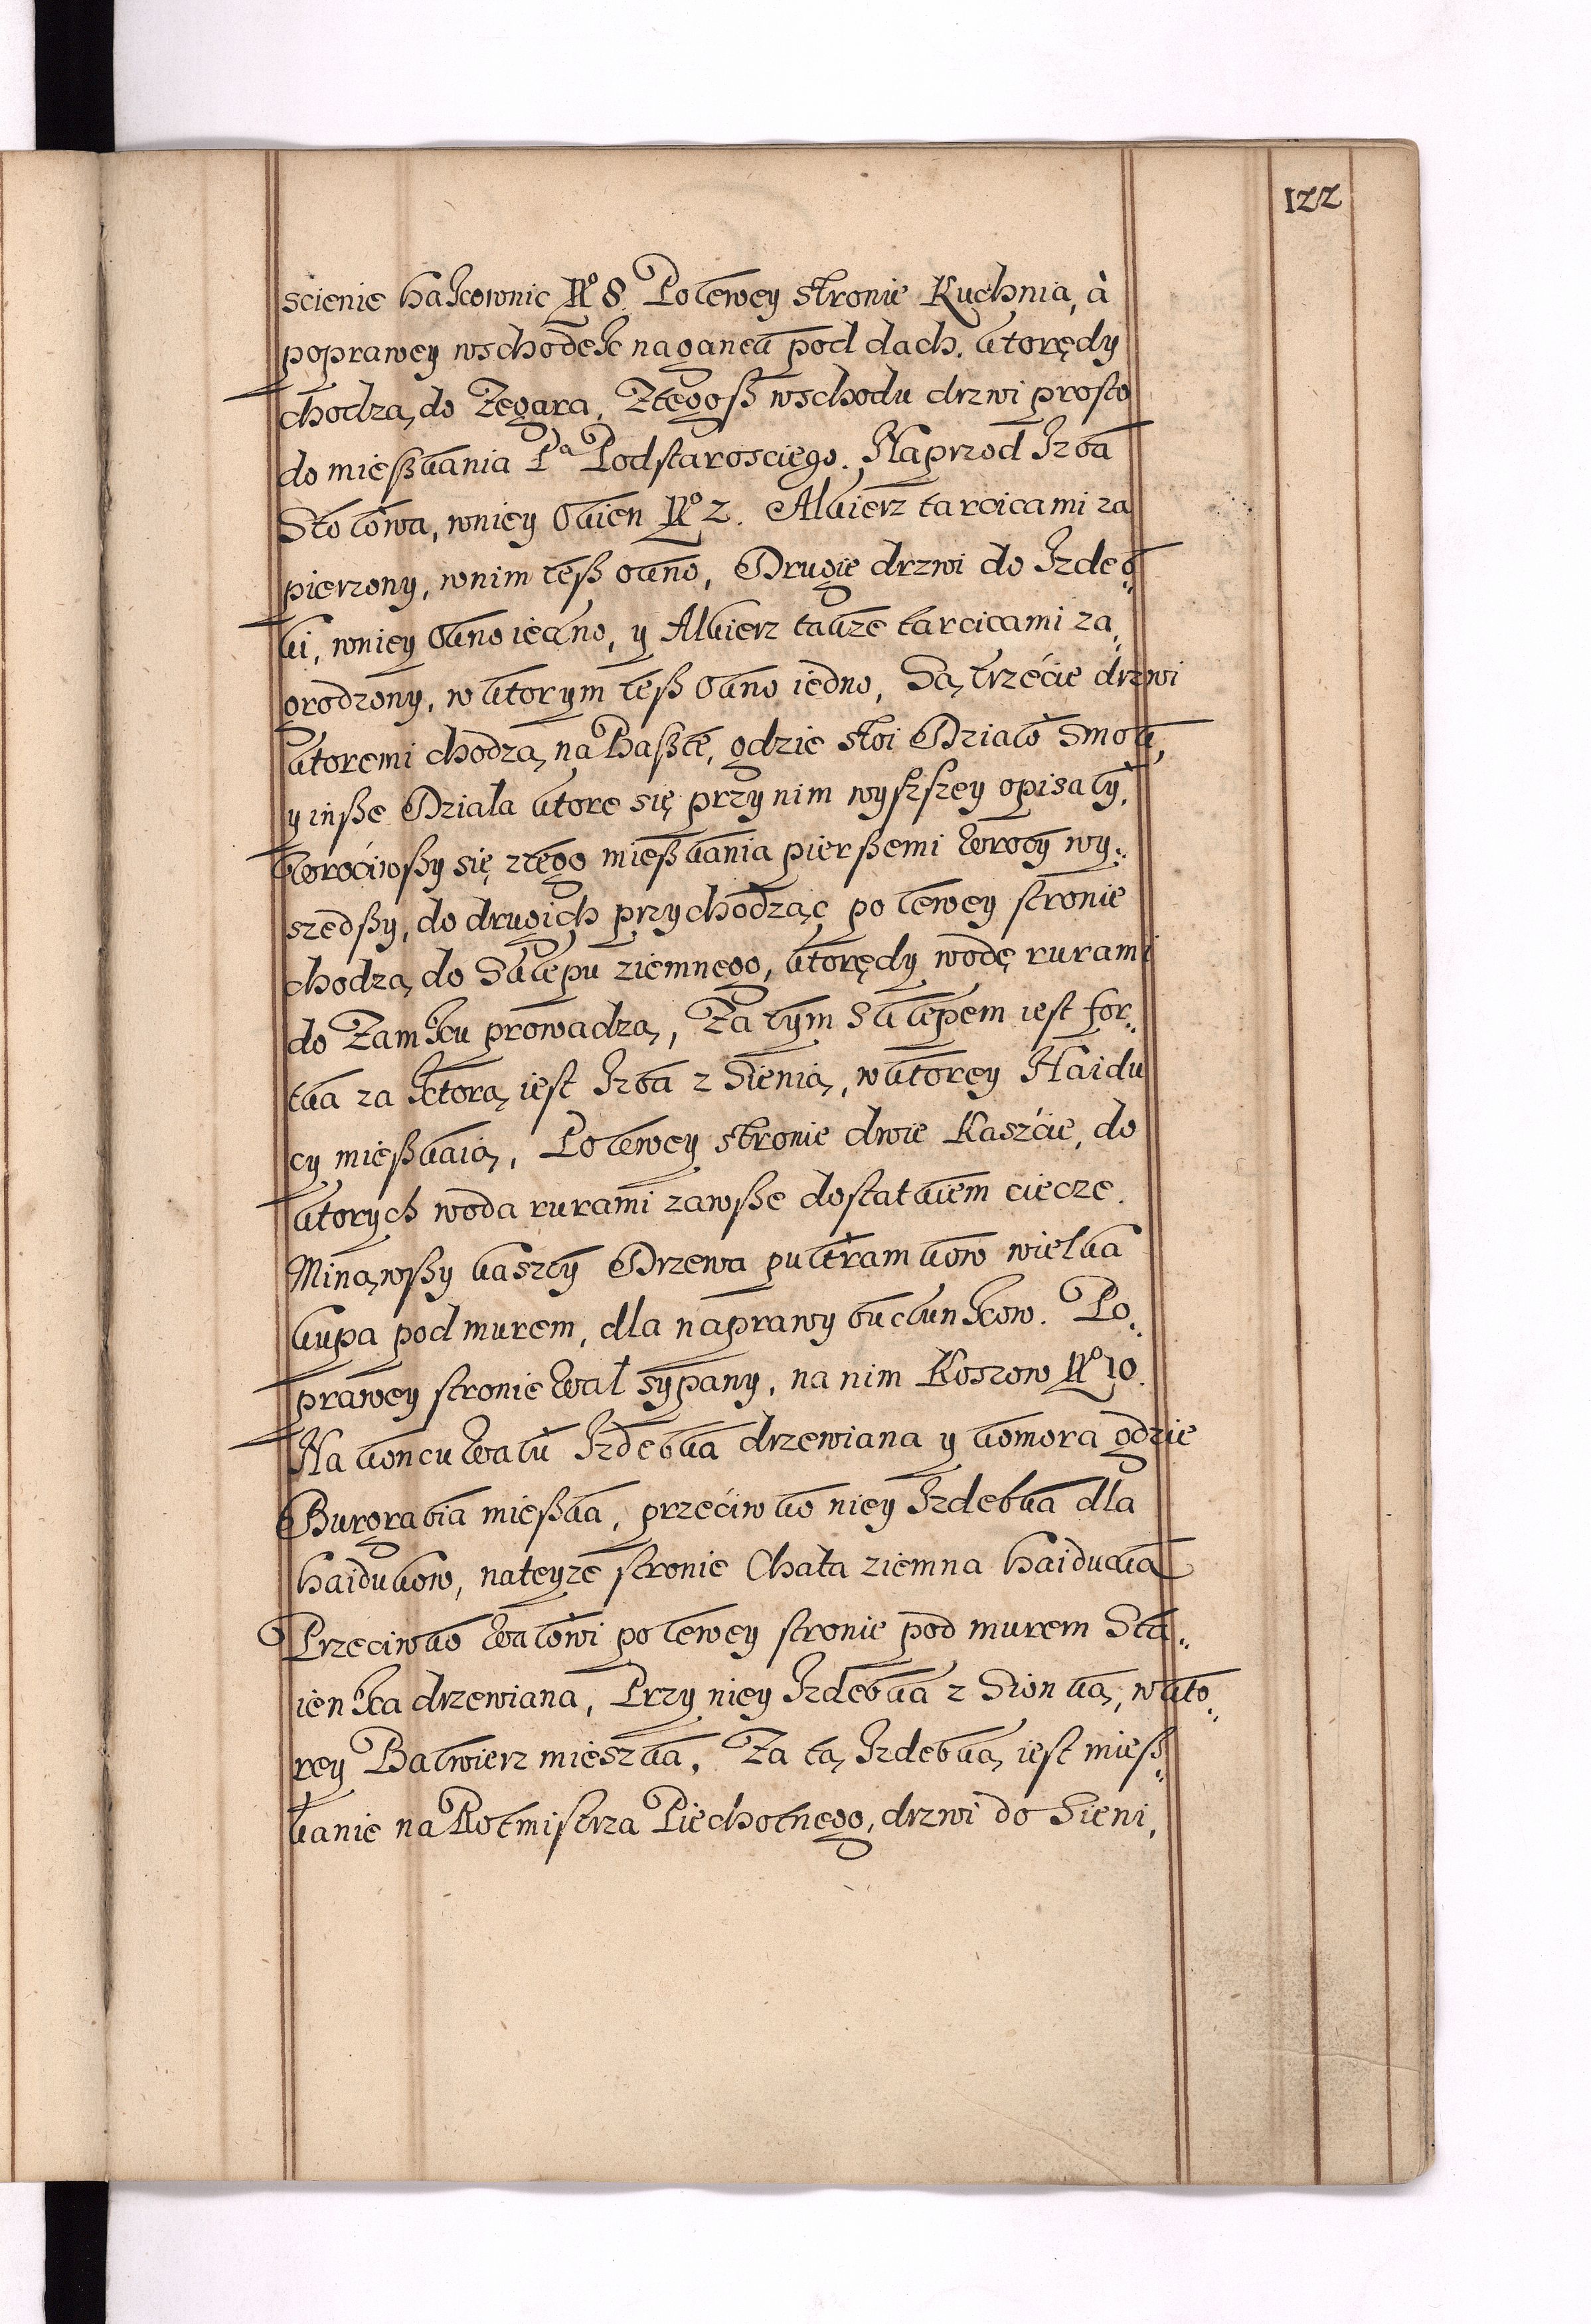 122
scienie hakownic No 8. Po lewey stronie Kuchnia, à
poprawey wschodek na ganek pod dach. ktorędy
chodzą do Zegara, Ztegoß wschodu drzwi prosto
do mießkania Pa Podstarosciego. Naprzod Izba
Stolowa, wniey Okien No 2. Alkierz tarcicami za
pierzony, wnim teß okno, Drugie drzwi do Izdeb
ki, wniey Okno iedno, y Alkierz takze tarcicami za,
grodzony, w ktorym teß Okno iedno, Są trzećie drzwi
ktoremi chodzą na Baßtę, gdzie stoi Działo Smok,
y inße Dziala ktore się przy nim wyszszey opisały,
Wroćiwßy się ztego mießkania pierßemi Wroty wy„
szedßy, do drugich przychodząc po lewey stronie
chodzą do Sklepu ziemnego, ktorędy wodę rurami
do Zamku prowadzą, Za tym Sklepem iest for„
tka za ktorą iest Izba z Sienią, w ktorey Haidu
cy mießkaią, Po lewey stronie dwie Kaszćie, do
ktorych woda rurami zawße dostatkiem ciecze.
Minąwßy kaszty Drzewa putramkow wielka
kupa pod murem, dla naprawy buchunkow. Po„
prawey stronie Wał sypany, na nim Koszow No 10.
Na koncu Wału Izdebka drzewiana y komora gdzie
Burgrabia mießka, przećiwko niey Izdebka dla
haidukow, nateyze stronie Chata ziemna haiducka
Przeciwko Wałowi po lewey stronie pod murem Sta„
ienka drzewiana, Przy niey Izdebka z Sionką, w kto„
rey Balwierz mieszka, Za tą Izdebką iest mieß„
kanie na Rotmistrza Piechotnego, drzwi do Sieni,